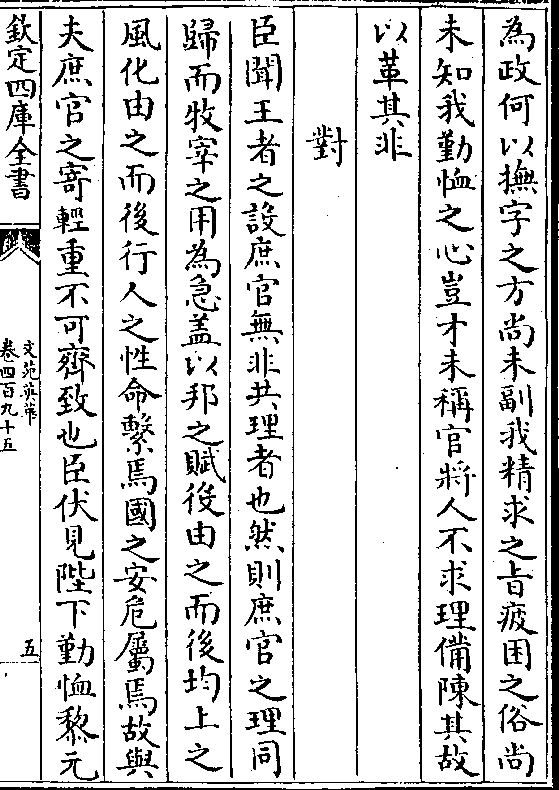 為政何以撫字之方尚未副我精求之旨疲困之俗尚
未知我勤恤之心豈才未稱官將人不求理備陳其故
以革其非
對
臣聞王者之設庶官無非共理者也然則庶官之理同
歸而牧宰之用為急盖以邦之賦役由之而後均上之
風化由之而後行人之性命繫焉國之安危屬焉故與
夫庶官之寄輕重不可齊致也臣伏見陛下勤恤黎元
欽定四庫全書
文苑英華
卷四百九十五
五